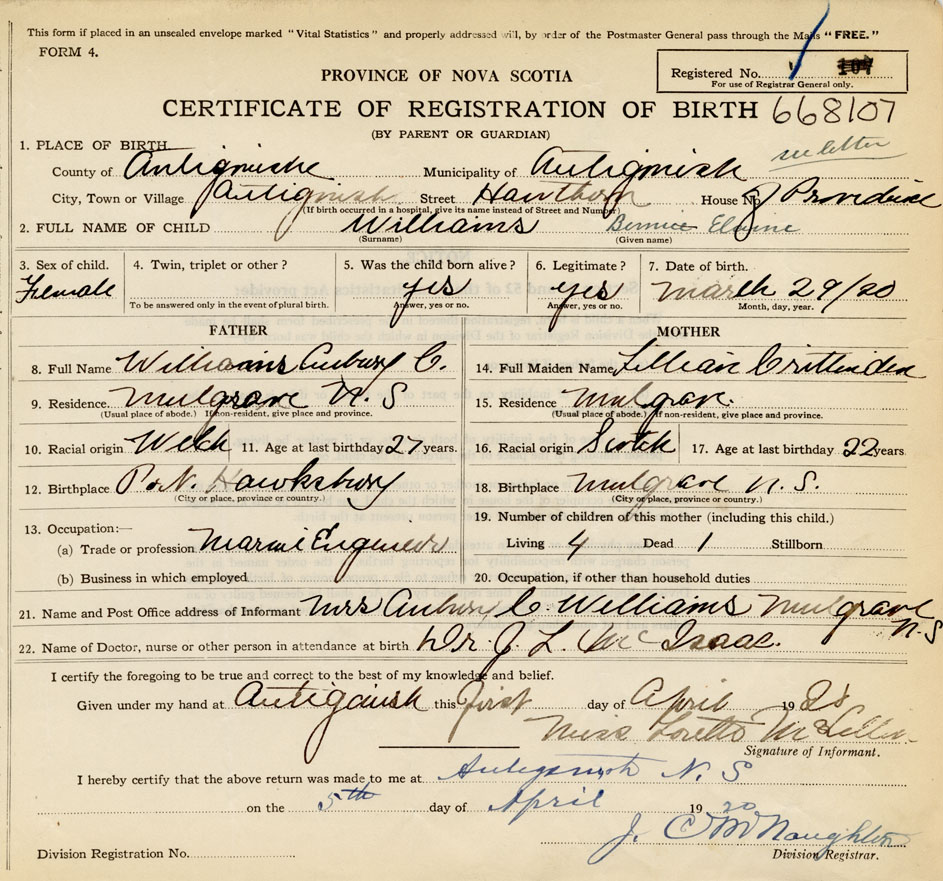 This form if placed in an unsealed envelope marked "Vital Statistics" and properly addressed will, by order of the Postmaster General pass through the Mails "FREE."
FORM 4.
Registered No. 107
For use of Registrar General only.
PROVINCE OF NOVA SCOTIA
CERTIFICATE OF REGISTRATION OF BIRTH 668107
(BY PARENT OR GUARDIAN)
see letter
1. PLACE OF BIRTH
County of Antigonishe Municipality of Antigonish
City, Town or Village Antigonish Street Hawthorn House No.
(If birth occurred in a hospital, give its name instead of Street and Number)
2. FULL NAME OF CHILD Williams Bernice Elaine
(Surname) (Given name)
3. Sex of child. 4. Twin, triplet or other? 5. Was the child born alive? 6. Legitimate? 7. Date of birth.
Female yes yes March 29/20
To be answered only in the event of plural birth. Answer, yes or no. Answer, yes or no. Month, day, year.
FATHER MOTHER
8. Full Name Williams Aubury C. 14. Full Maiden Name Lillian Crittenden
9. Residence. Mulgrave N. S 15. Residence Mulgrave.
(Usual place of abode.) If non-resident, give place and province. (Usual place of abode.) If non-resident, give place and province.
10. Racial origin Welch 11. Age at last birthday 27 years. 16. Racial origin Scotch 17. Age at last birthday 22 years
12. Birthplace Hawksbury 18. Birthplace Mulgrave N. S.
(City or place, province or country.) (City or place, province or country.)
13. Occupation:— 19. Number of children of this mother (including this child.)
(a) Trade or profession Marine Engineer Living 4 Dead 1 Stillborn
(b) Business in which employed 20. Occupation, if other than household duties
21. Name and Post Office address of Informant Mrs Aubury C. Williams Mulgrave N. S
22. Name of Doctor, nurse or other person in attendance at birth Dr. J. L. Mc Isaac.
I certify the foregoing to be true and correct to the best of my knowledge and belief.
Given under my hand at Antigonish this first day of April 19 20
Miss Loretto
Signature of Informant.
I hereby certify that the above return was made to me at Antigonish N. S
on the 5th day of April 19 20
J. C. McNaughton
Division Registration No. Division Registrar.